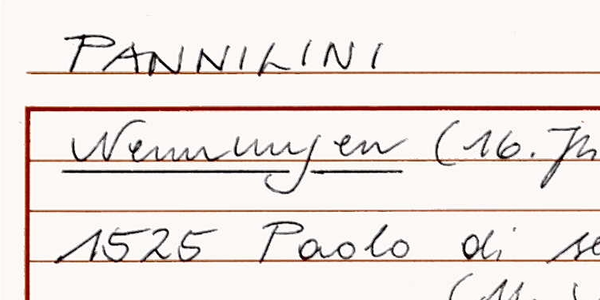 PANNILINI
Nennungen (16. Jh
1525 Paolo di se